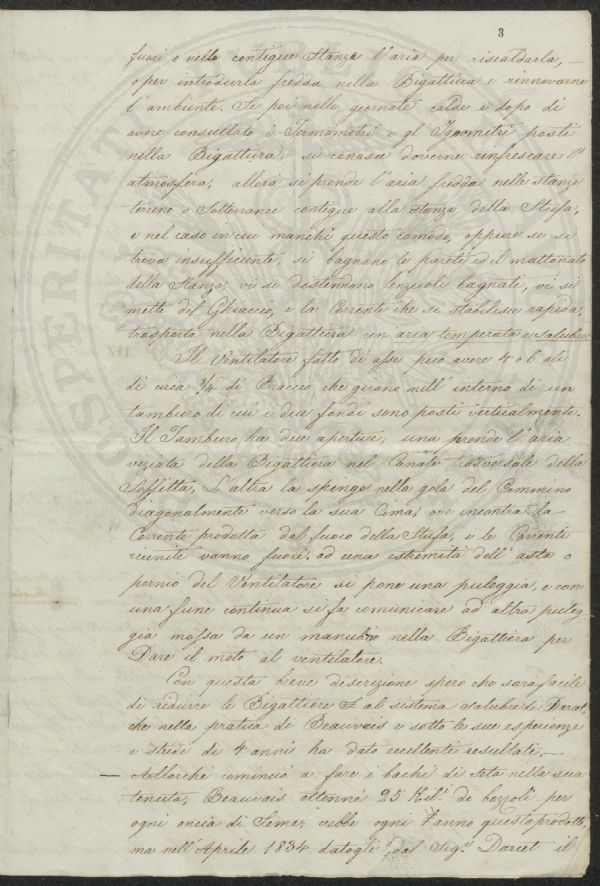 3
fuori o nelle contigue Stanze l'aria per riscaldarla, —
o per introdurla fredda nella Bigattiera e rinnovarne
l'ambiente. Se poi nelle giornate calde e dopo di
avere consultato i Termometri e gl'Igrometri posti
nella Bigattiera, si conosce doverne rinfrescare l'
atmosfera, allora si prende l'aria fredda nelle stanze
terrene o Sotterranee contigue alla stanza della Stufa,
e nel caso in cui manchi questo comodo, oppure se si
trova insufficiente, si bagnano le pareti ed il mattonato
della Stanza, vi si distendono lenzuoli bagnati, vi si
mette del Ghiaccio, e la Corrente che si stabilisce rapida,
trasporta nella Bigattiera un'aria temperata e salubre.
Il Ventilatore fatto di asse può avere 4 o 6 ali
di circa 3/4 di Braccio che girano nell'interno di un
tamburo di cui i due fondi sono posti verticalmente.
Il Tamburo ha due aperture; una prende l'aria
viziata della Bigattiera nel Canale trasversale della
Soffitta, L'altra la spinge nella gola del Cammino
diagonalmente verso la sua Cima, ove incontra la
Corrente prodotta dal fuoco della Stufa, e le Correnti
riunite vanno fuori. ad una estremità dell'asta o
pernio del Ventilatore si pone una puleggia, e con
una fune continua si fa comunicare ad altra puleg-
gia mossa da un manubrio nella Bigattiera per
Dare il moto al ventilatore.
Con questa breve descrizione spero che sarà facile
di ridurre le Bigattiere al sistema salubre di Darcet,
che nella pratica di Beauvais e sotto le sue esperienze
e studi di 4 anni ha dato eccellente resultate. —
— Allorchè cominciò a fare i bachi di seta nella sua
tenuta, Beauvais ottenne 25 Kil. di bozzoli per
ogni oncia di Seme; ebbe ogni anno questo prodotto,
ma nell'Aprile 1834 datogli dal Sig.r Darcet il